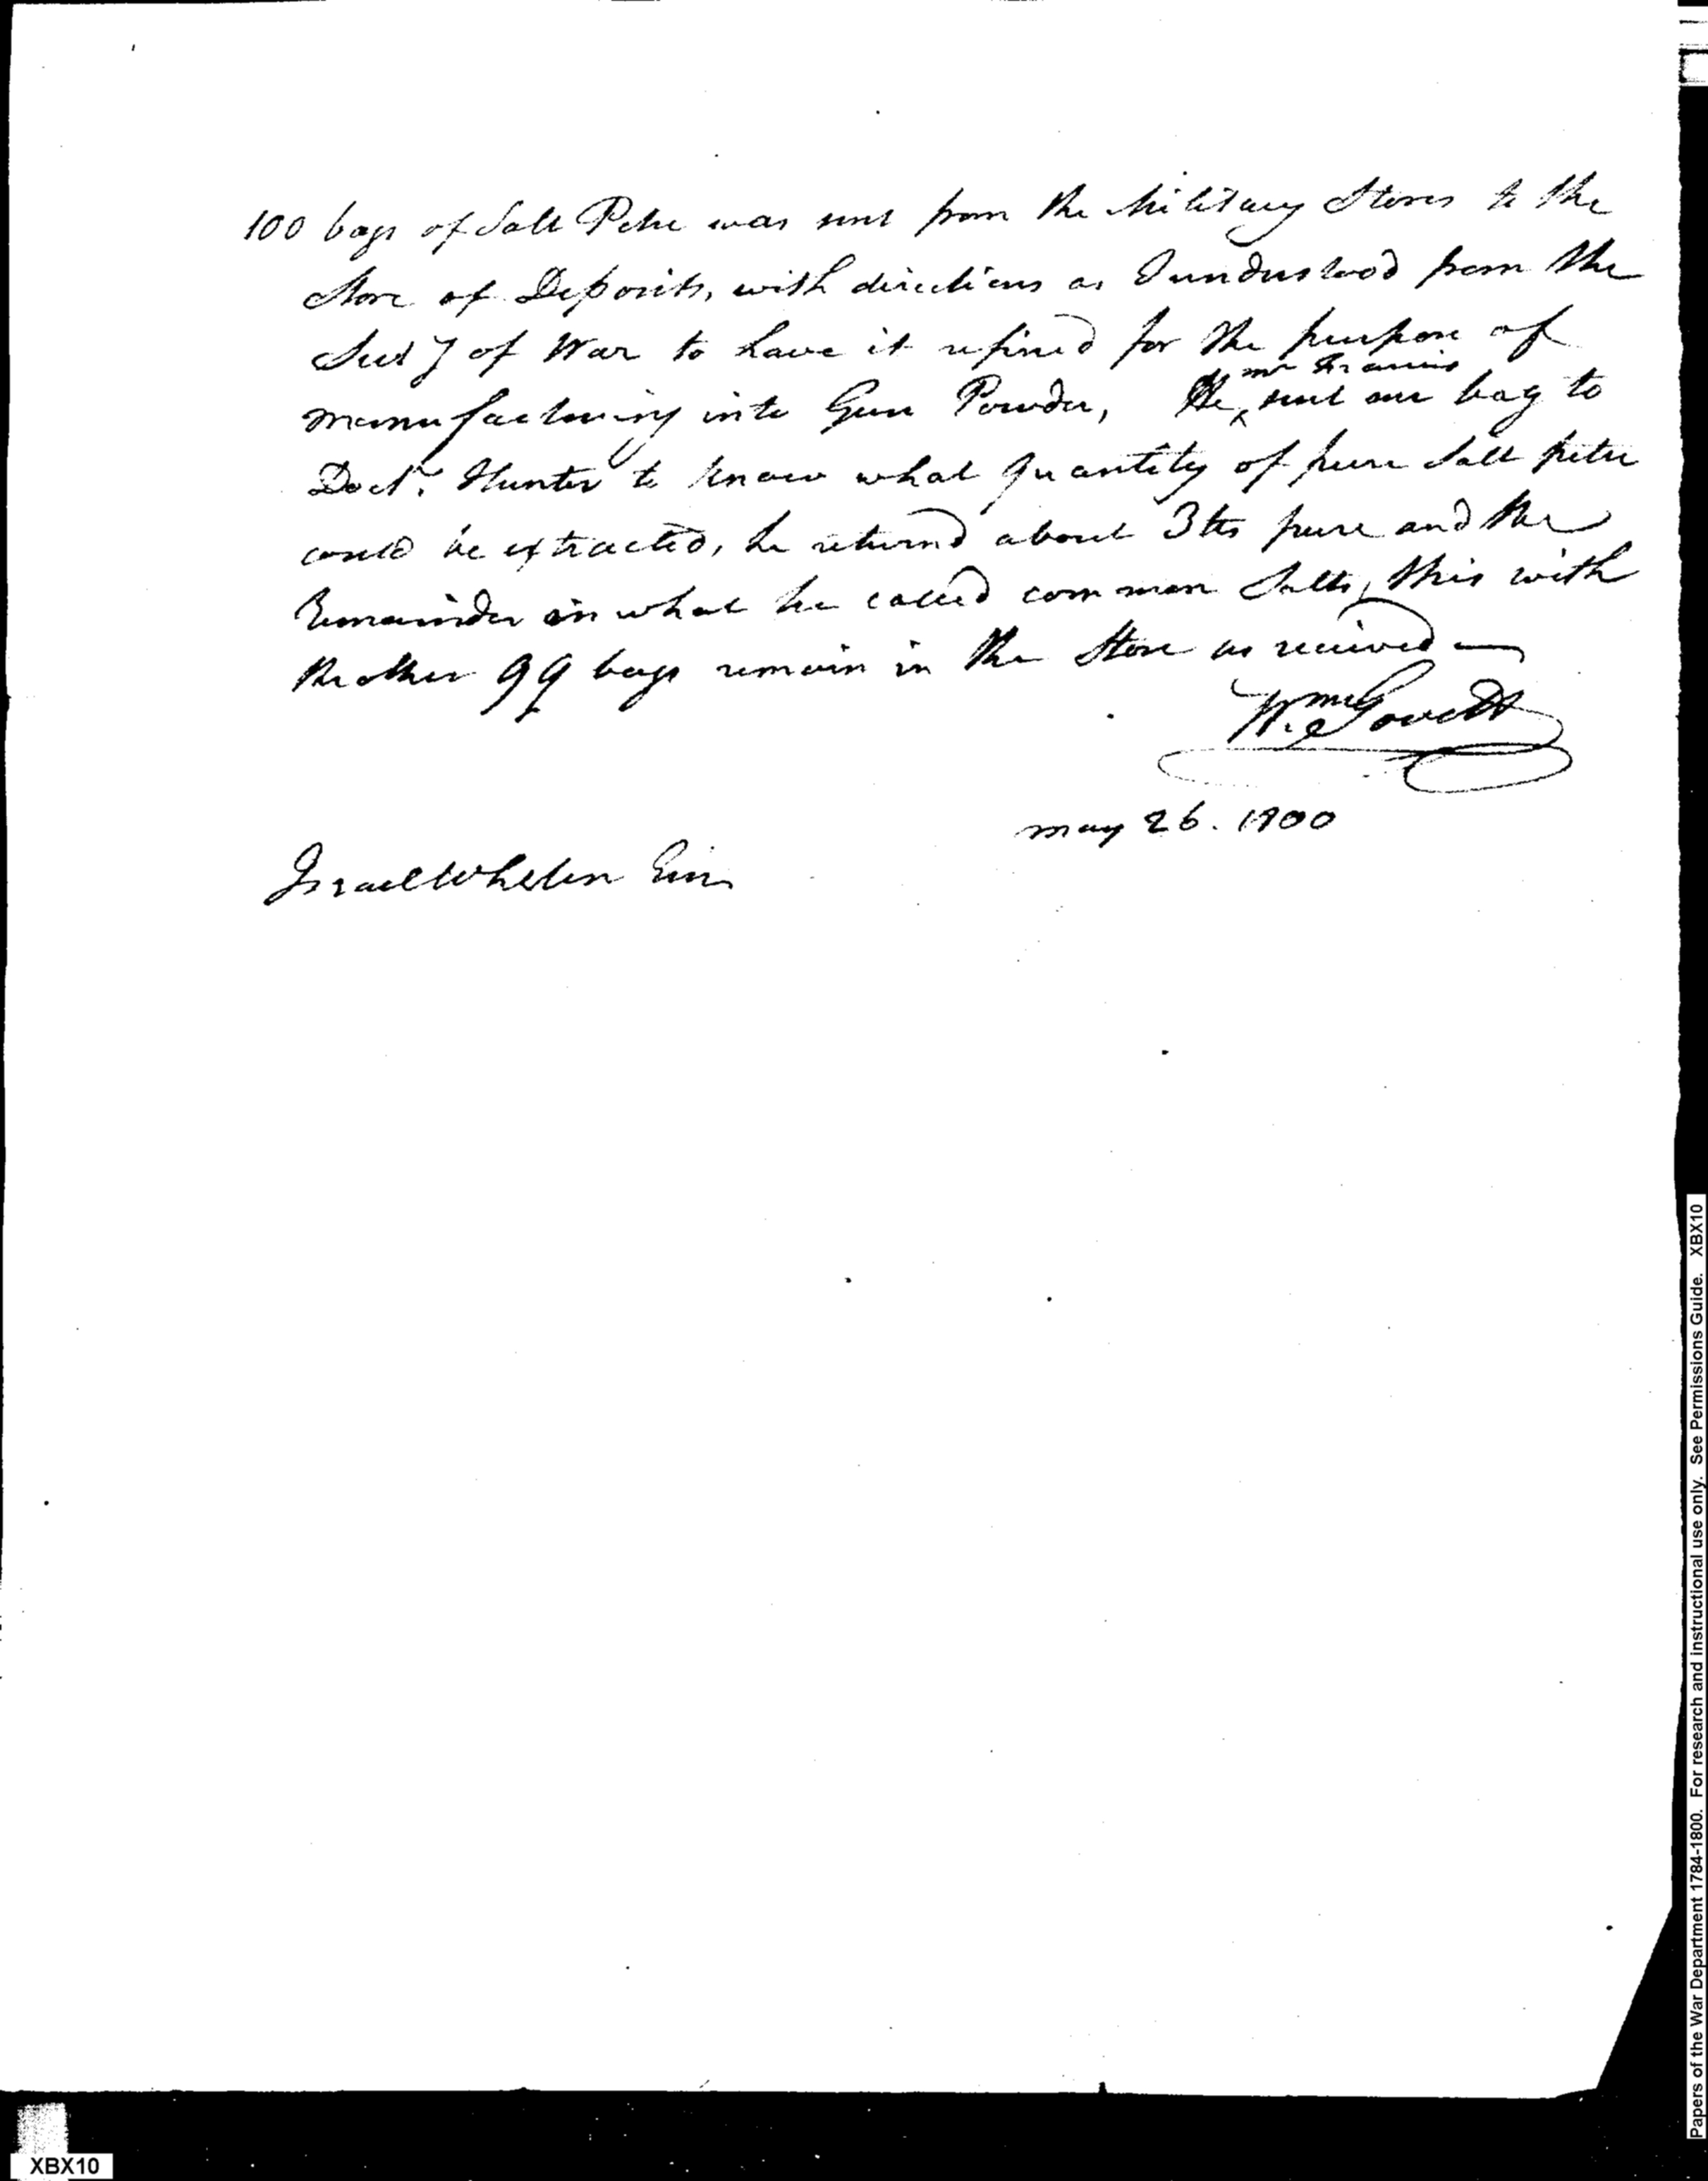 100 bags of Salt Petre was sent from the Military Stores to the
Store of Deposits, with directions as I understood from the
Secy of War to have it refined for the purpose of
manufactoring into Gun Powder, He ^ mr Francis sent one bag to
Doctr. Hunter to know what quantity of pure Salt petre
could be extracted, he returnd about 3 lbs pure and the
Remainder in what he called common Salts, this with
the other 99 bags remain in the Store as received —
Wm Govett
may 26. 1800
Israel Whelen
Papers of the War Department 1784-1800. For research and instructional use only. See Permissions Guide. XBX10
XBX10